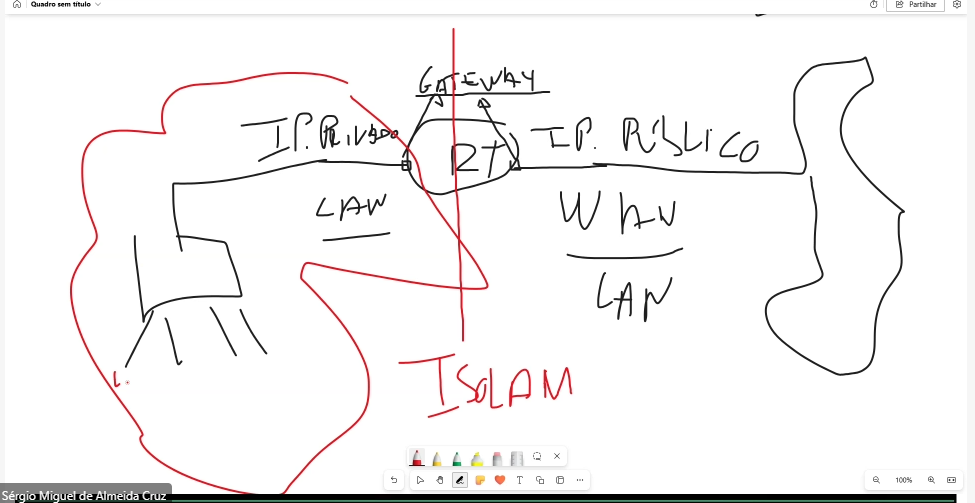 Quadro sem título
Partilhar
GATEWAY
IP. PRIVADO
RT
IP. PÚBLICO
LAN
WAN
LAN
ISOLAM
100%
Sérgio Miguel de Almeida Cruz